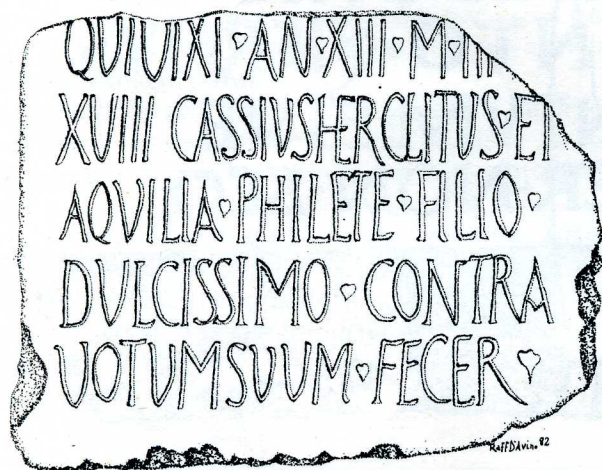 QUIUIXI AN XIII M III
XVIII CASSIVS HERCLITUS ET
AQVILIA PHILETE FILIO
DULCISSIMO CONTRA
UOTUMSUUM FECER
Raff D'Avino 82